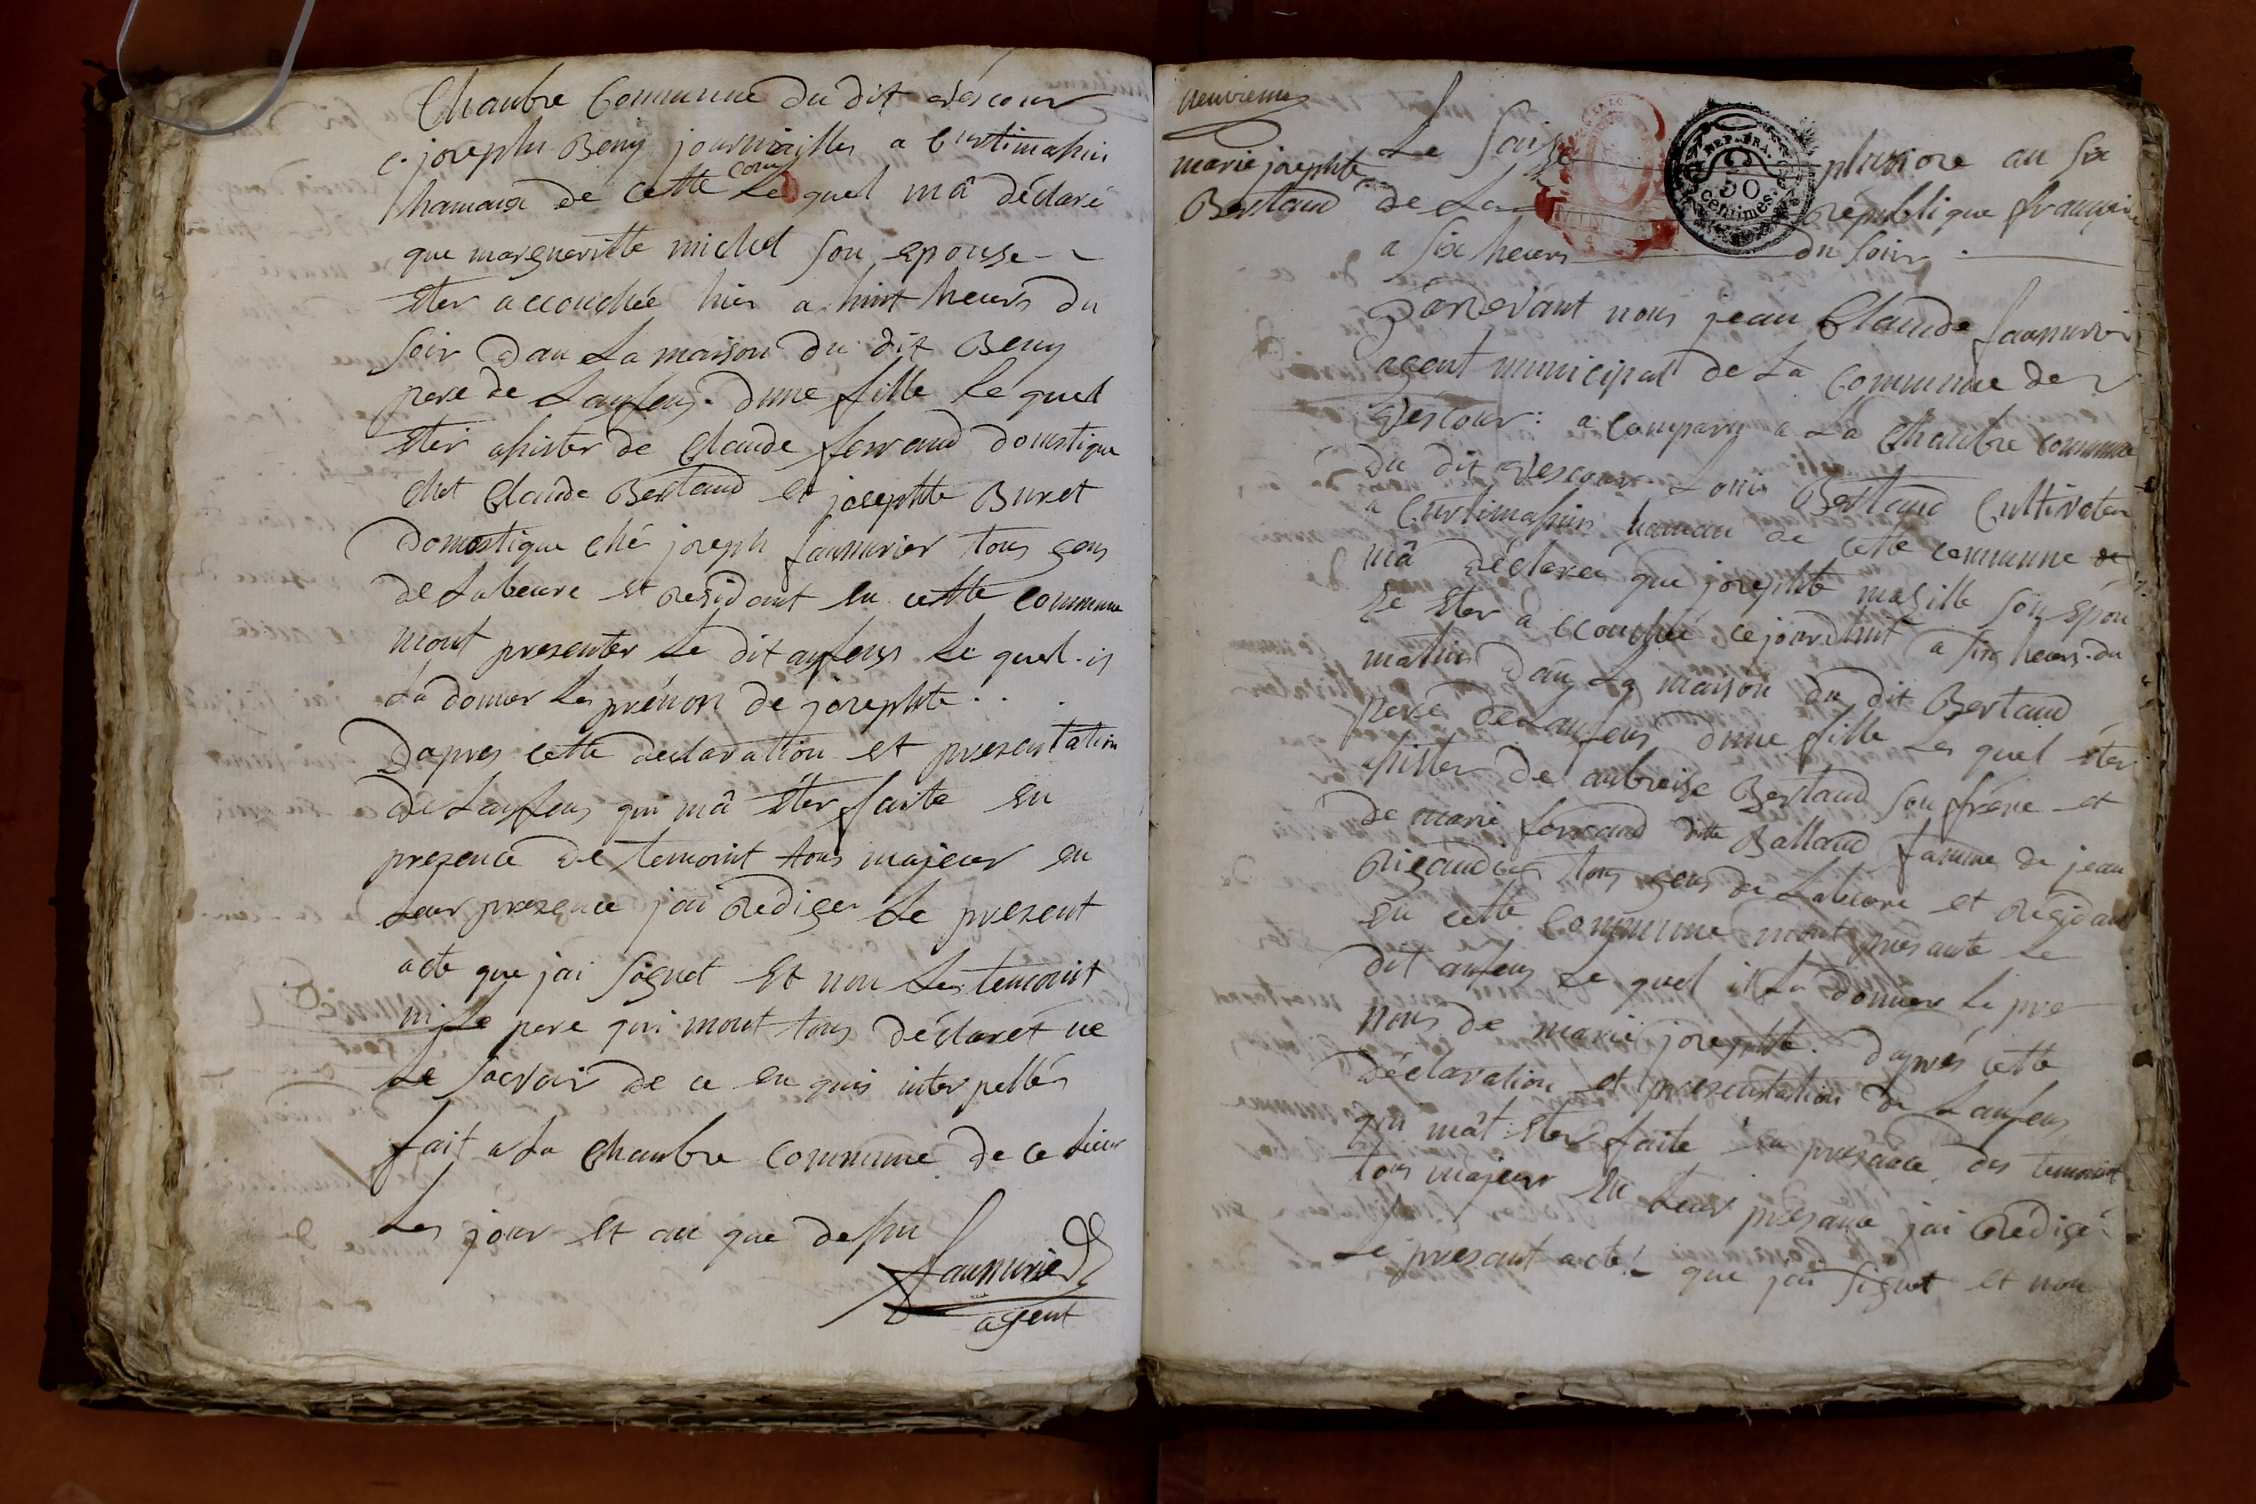 Chambre Commune du dit véscour
c. joseph Beny journaillier a Curtimassin
hamaux de cette com Le quel mâ déclaré
que margueritte michel son epousse
eter accouchée hier a huit heurs du
soir dan La maison du dit Beny
pere de Lanfens. dune fille Le quel
eter assister de Claude ferraud domstique
chet Claude Bertaud et josephte Buret
domestique ché joseph faumurier tous gens
de Labeure et residant en cette commune
mont presenter Le dit anfens Le quel il
La donner Les prénon de josephte . .
Dapres cette declaration et presentation
de Lanfens qui mâ éter faite en
presence de temoint tous majeur en
Leur presence jai Rediger Le present
acte que jai signet et non Les temoint
ni Le pere qui mont tous déclaret ne
Le scavoir de ce en quis interpellés
fait a La Chambre Commune de ce Lieux
Les jour et an que dessu
faumurier
agent
neuvieme
marie josephte
Bertaud
Le Saise pluviose an six
de La République française
a six heurs du soir
Pardevant nous jean Claude faumurier
agent municipal de La Commune de
véscour : a comparu a La Chambre commune
du dit vescour Louis Bertaud Cultivateur
a Curtimassin hamau de cette commune de
mâ déclaréé que josephte masille son épou
se eter accouchéé cejourdhui a six heurs du
matin dans La maison du dit Bertaud
pere de Lanfens dune fille Les quel éter
assister de anbroise Bertaud son frére et
de marie ferraud ditte Ballaud famme de jean
Rigaudier tous gens de Labeure et résidant
en cette commune mont présante Le
dit anfens Le quel il La donner Le pre
nons de marie josephte. dapres cette
déclaration et presentation de Lanfens
qui mât eter faite en présance des temoint
tous majeur en Leur présance jai Rédigé
Le présant acte ! que jai signet et non
REP. FRA.
50
centimes